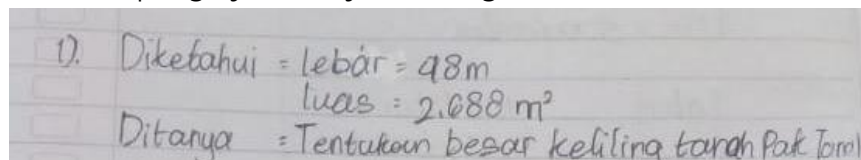 1). Diketahui = lebar = 48m
luas = 2.688 m²
Ditanya = Tentukan besar keliling tanah Pak Tomi